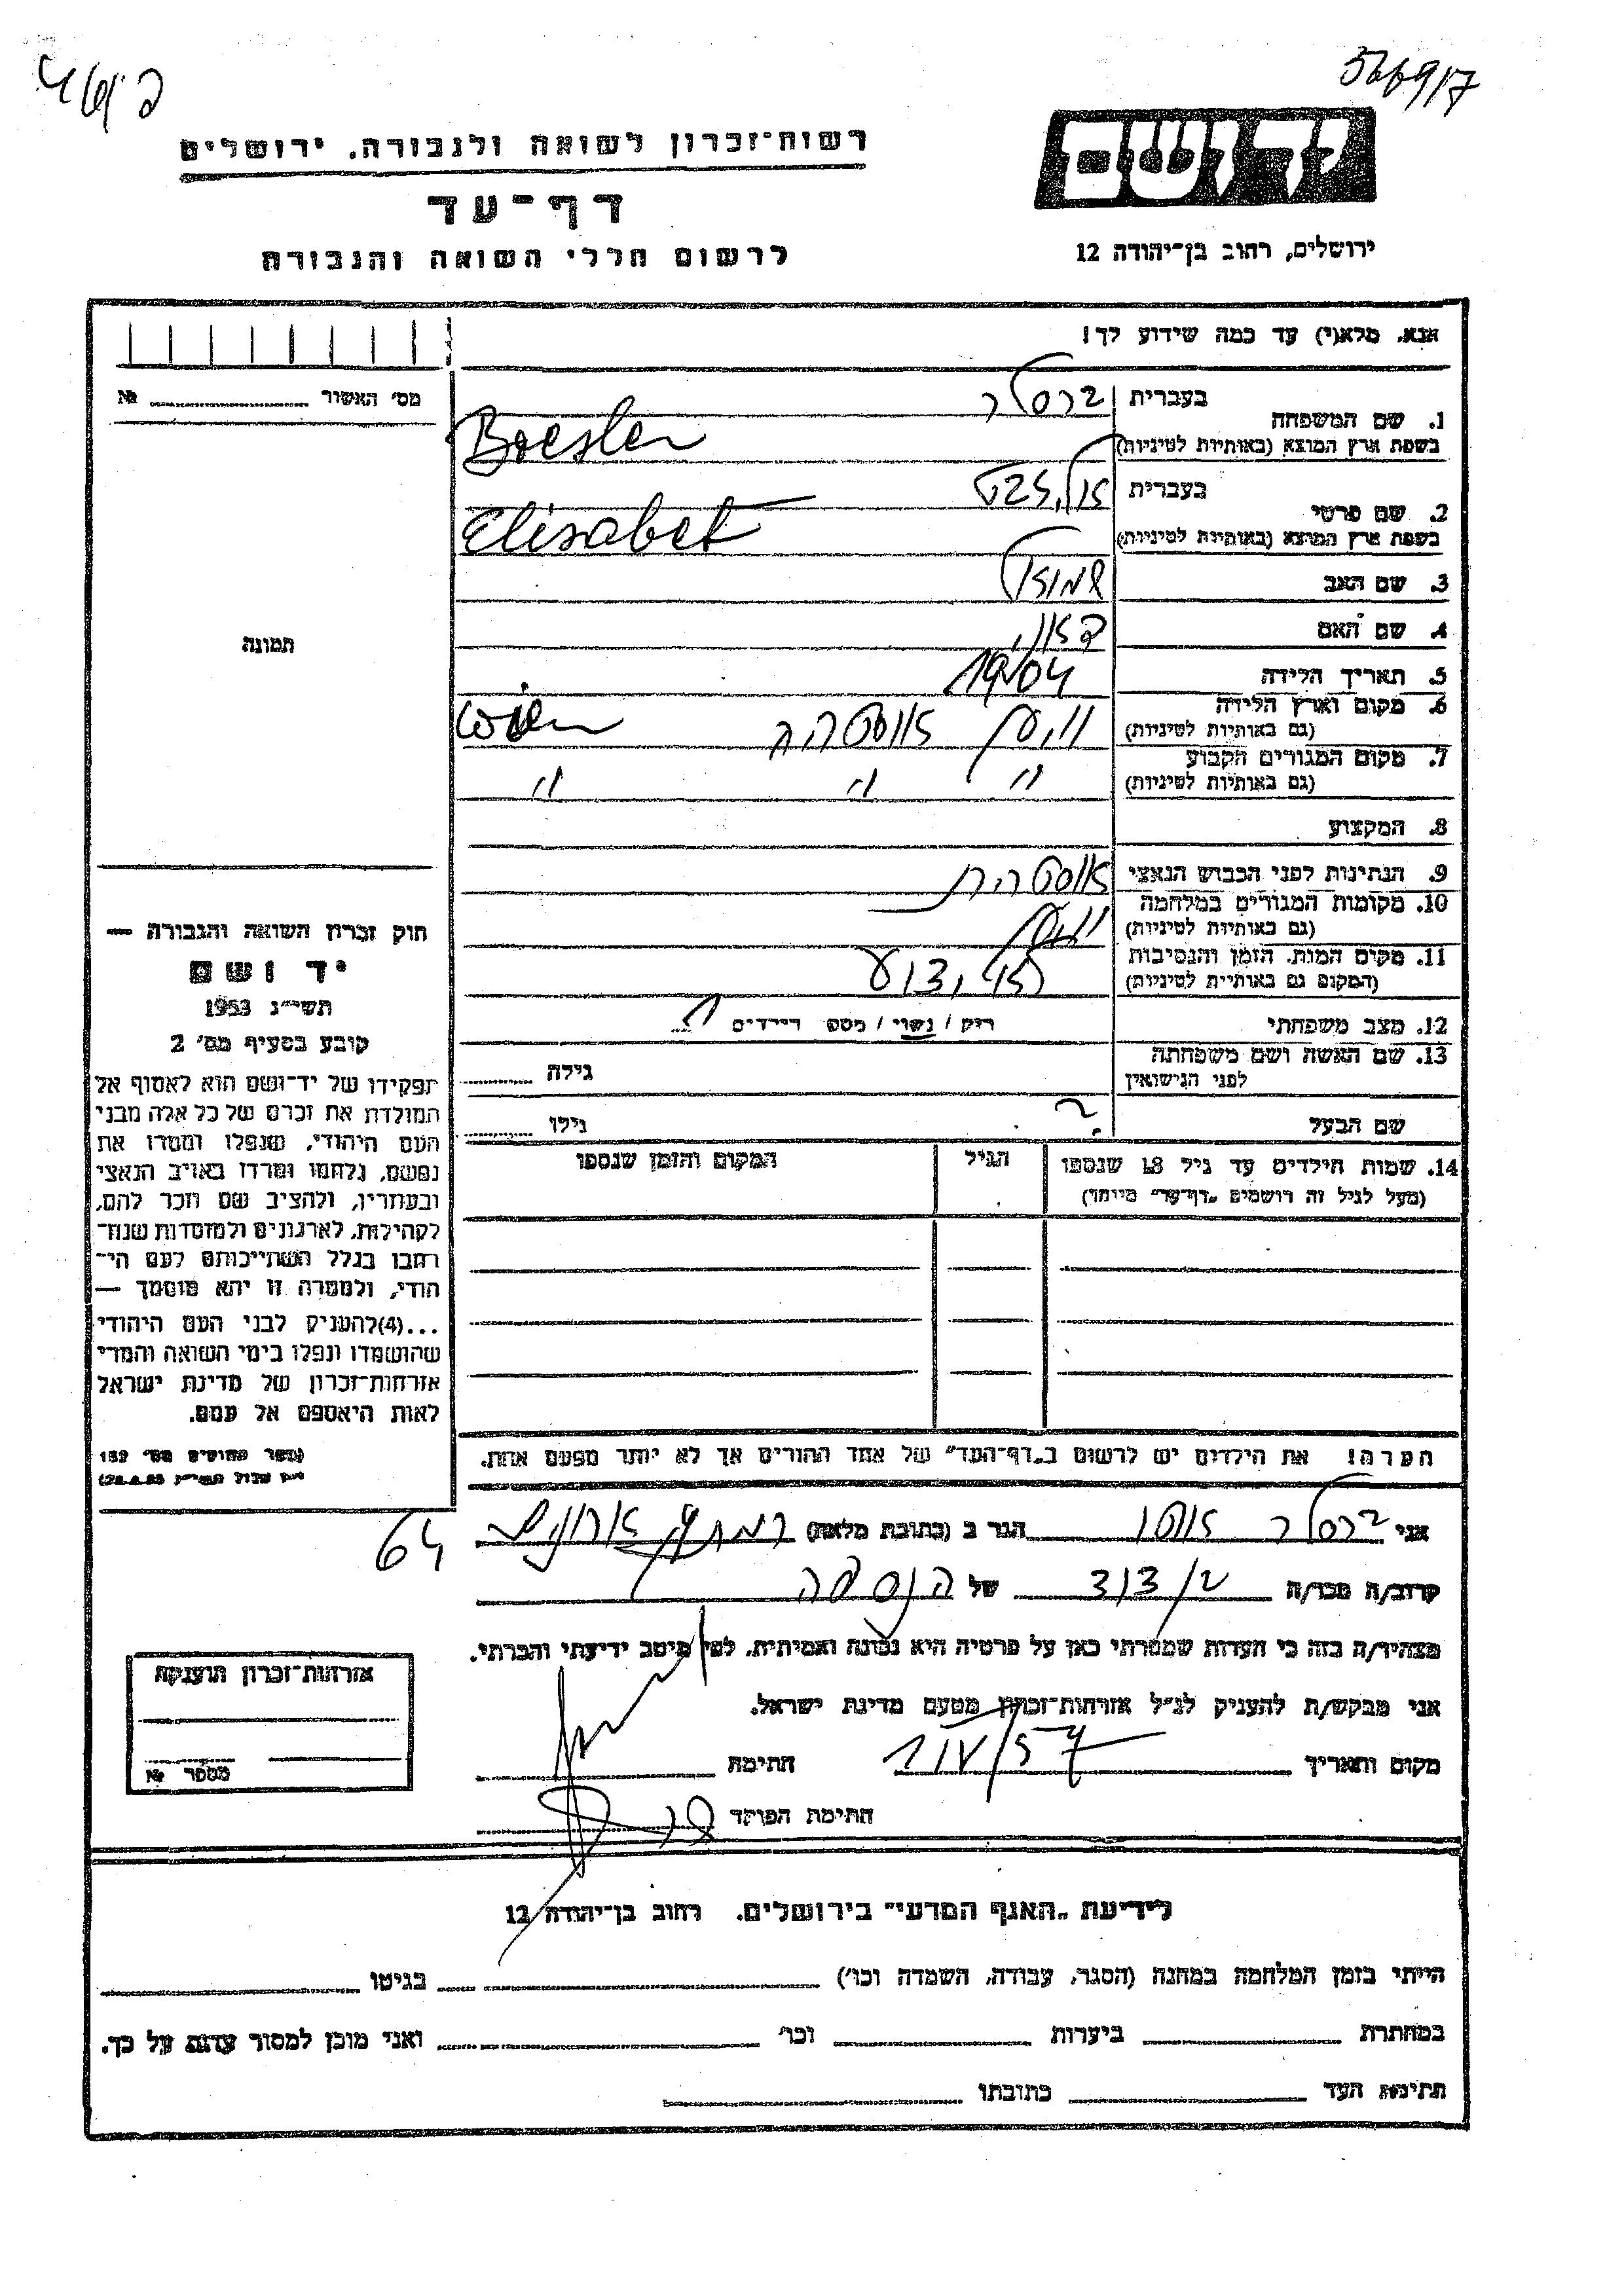 566917
רשות־זכרון לשואה ולגבורה. ירושלים
דף־עד
לרשום חללי השואה והגבורה
יד ושם
ירושלים, רחוב בן־יהודה 12
אנא, מלא(י) עד כמה שידוע לך!
מס׳ האשור №
1. שם המשפחה
בעברית ברסלר
בשפת ארץ המוצא (באותיות לטיניות) Bresler
2. שם פרטי
בעברית
בשפת ארץ המוצא (באותיות לטיניות) Elisabet
3. שם האב שמואל
4. שם האם
5. תאריך הלידה 1904
6. מקום וארץ הלידה
(גם באותיות לטיניות) וין אוסטריה Wien
7. מקום המגורים הקבוע
(גם באותיות לטיניות) " " "
8. המקצוע
9. הנתינות לפני הכבוש הנאצי אוסטרית
10. מקומות המגורים במלחמה
(גם באותיות לטיניות) וין
11. מקום המות, הזמן והנסיבות
(המקום גם באותיות לטיניות)
12. מצב משפחתי רוק / נשוי / מספ הילדים 1
13. שם האשה ושם משפחתה
לפני הנישואין גילה
שם הבעל ? גילו
14. שמות הילדים עד גיל 18 שנספו
(מעל לגיל זה רושמים „דף־עד״ מיוחד)
הגיל
המקום והזמן שנספו
תמונה
חוק זכרון השואה והגבורה —
יד ושם
תשי״ג 1953
קובע בסעיף מס׳ 2
תפקידו של יד־ושם הוא לאסוף אל
המולדת את זכרם של כל אלה מבני
העם היהודי, שנפלו ומסרו את
נפשם, נלחמו ומרדו באויב הנאצי
ובעוזריו, ולהציב שם וזכר להם,
לקהילות, לארגונים ולמוסדות שנח־
רבו בגלל השתייכותם לעם הי־
הודי, ולמטרה זו יהא מוסמך —
...(4)להעניק לבני העם היהודי
שהושמדו ונפלו בימי השואה והמרי
אזרחות־זכרון של מדינת ישראל
לאות היאספם אל עמם.
(ספר החוקים מס׳ 132
הערה! את הילדים יש לרשום ב„דף־העד״ של אחד ההורים אך לא יותר מפעם אחת.
אני ברסלר הגר ב (כתובת מלאה) רמת
64
קרוב/ה מכר/ה של הנספה
מצהיר/ה בזה כי העדות שמסרתי כאן על פרטיה היא נכונה ואמיתית, לפי מיטב ידיעתי והכרתי.
אני מבקש/ת להעניק לנ״ל אזרחות־זכרון מטעם מדינת ישראל.
מקום ותאריך 1/V/57 חתימה
חתימת הפוקד
אזרחות־זכרון הוענקה
מספר №
לידיעת „האגף המדעי״ בירושלים. רחוב בן־יהודה 12
הייתי בזמן המלחמה במחנה (הסגר, עבודה, השמדה וכו׳) בגיטו
במחתרת ביערות וכו׳ ואני מוכן למסור עדות על כך.
חתימת העד כתובתו